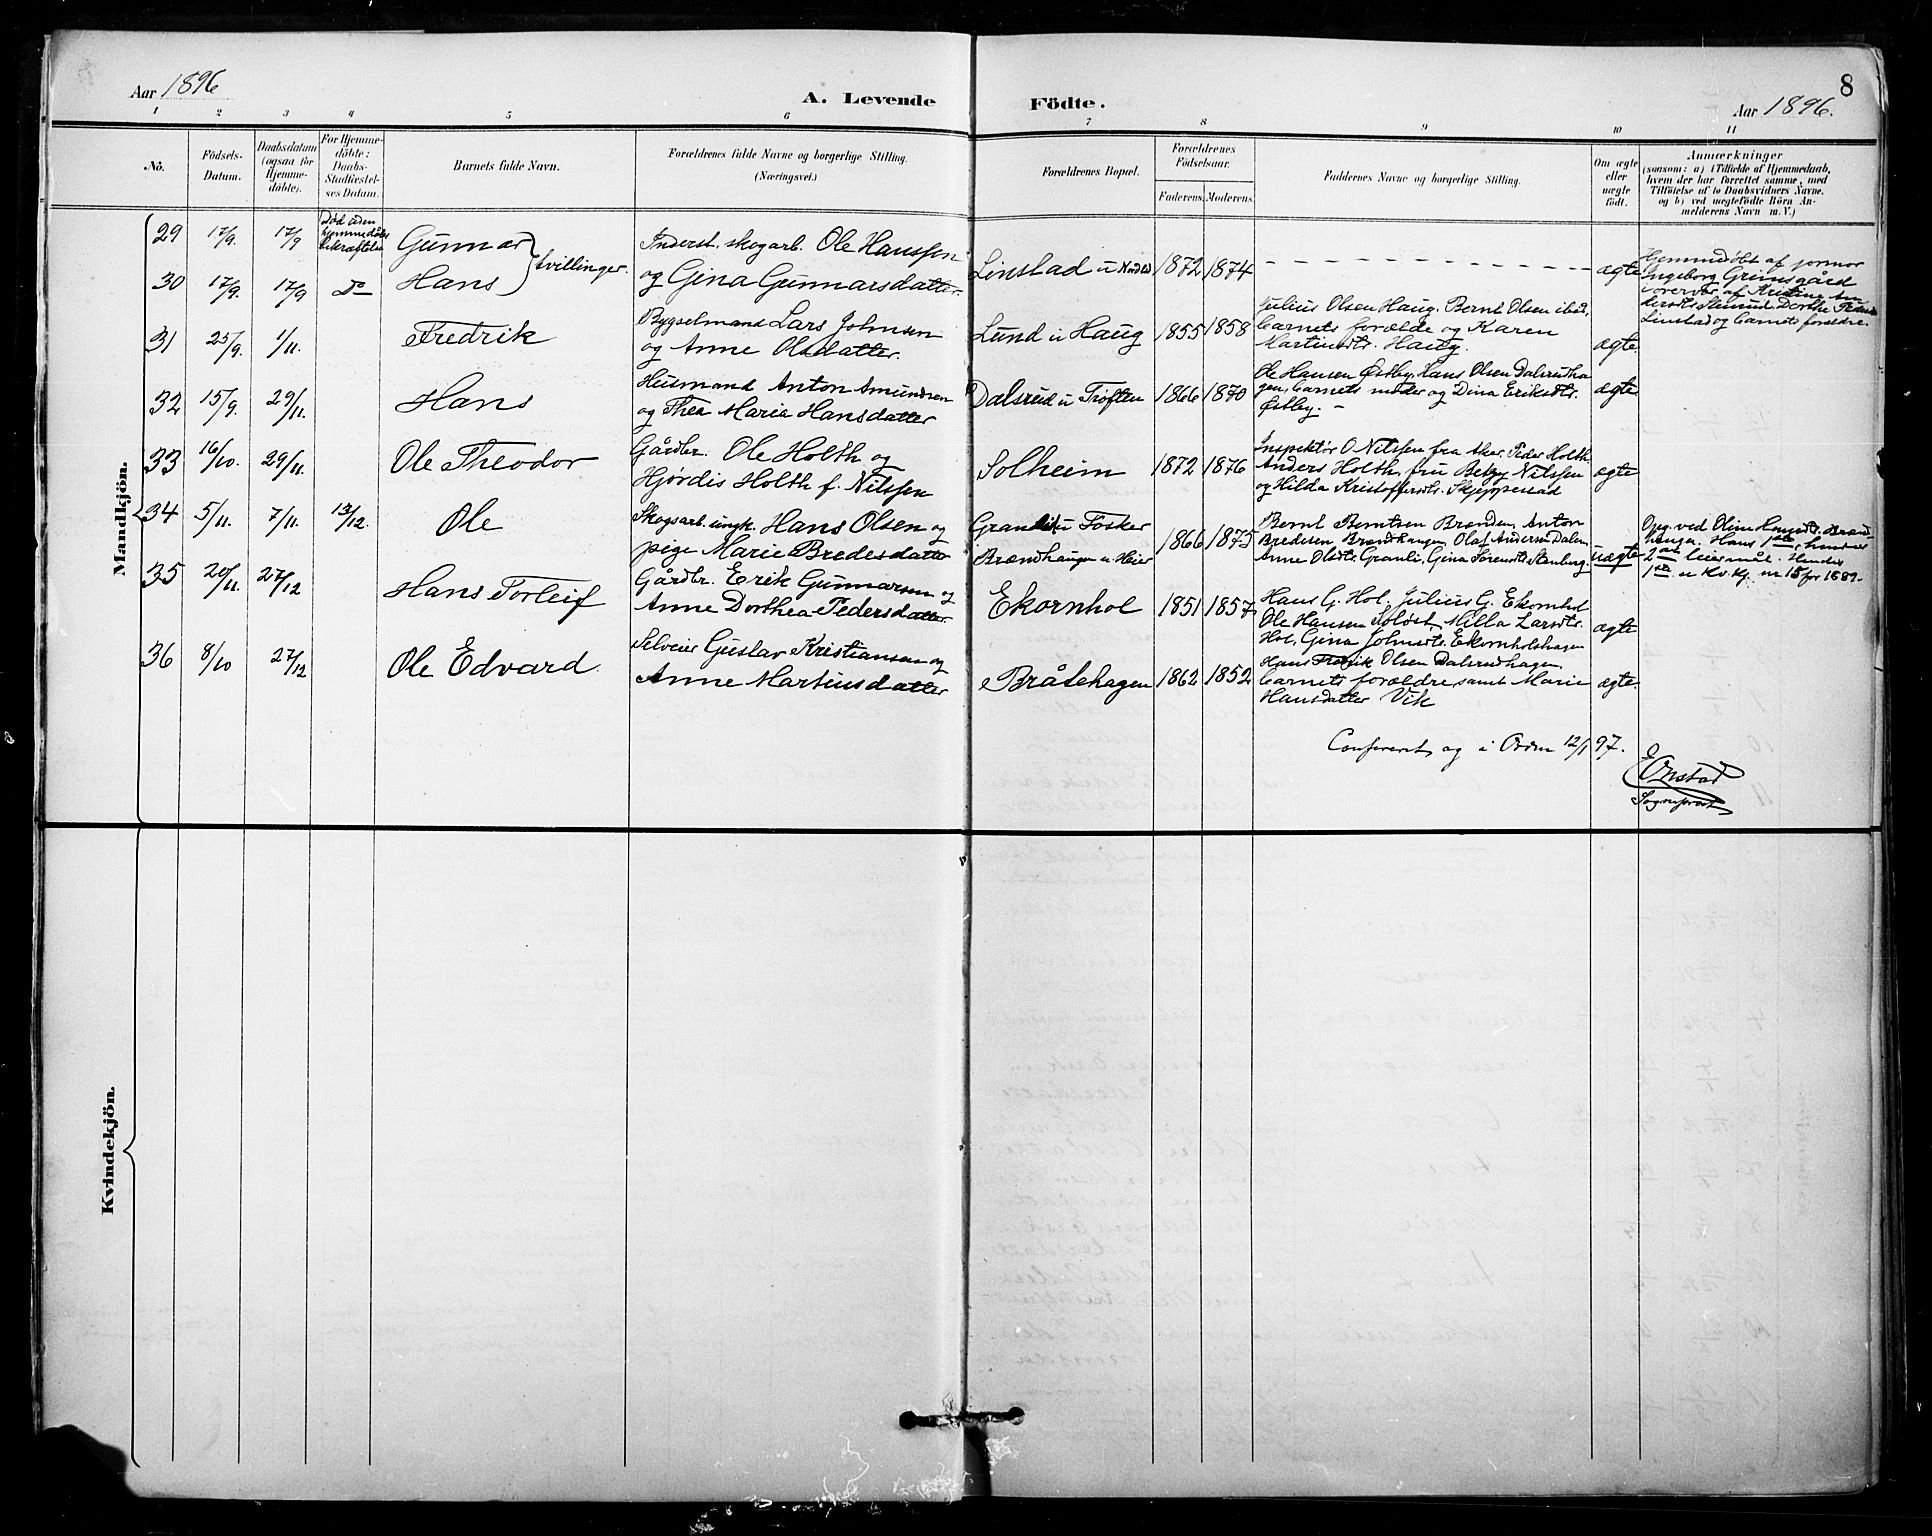 Aar 1896
A. Levende Födte.
8
Aar 1896.
1 2 3 4 5 6 7 8 9 10 11
No.
Födsels-
Datum.
Daabsdatum
(ogsaa for
Hjemme-
döbte).
For Hjemme-
döbte:
Daabs-
Stadfæstel-
ses Datum.
Barnets fulde Navn.
Forældrenes fulde Navne og borgerlige Stilling.
(Næringsvei.)
Forældrenes Bopæl.
Forældrenes
Födselsaar.
Faderens. Moderens.
Faddernes Navne og borgerlige Stilling.
Om ægte
eller
uægte
født.
Anmærkninger
(saasom: a) i Tilfælde af Hjemmedaab,
hvem der har forrettet samme, med
Tilföielse af to Daabsvidners Navne,
og b) ved uægtefödte Börn An-
melderens Navn m. V.)
Mandkjön.
29 17/9. 17/9
Død uden
hjemmedåbs
bekræftelse
Gunnar
tvillinger.
Inderst, skogarb. Ole Hanssen
30 17/9. 17/9 Do
Hans
og Gina Gunnarsdatter.
Linstad u 1872 1874
ægte
Hjemmedøbt af jormor
Ingeborg Grinsgård
overvær af Kristine
Linstad og barnets forældre.
31 25/9. 1/11.
Fredrik
Bygselmand Lars Johnsen
og Anne Olsdatter.
Lund u Haug 1855 1858
Julius Olsen Haug. Bernt Olsen ibid,
barnets forældre og Karen
Martinsdtr. Haug.
ægte.
32 15/9. 29/11.
Hans
Husmand Anton Amundsen
og Thea Marie Hansdatter
Dalsrud u Troften 1866 1870
Ole Hansen Østby, Hans Olsen Dalsrudha
gen, barnets moder og Dina Eriksdtr.
Østby. –
ægte
33 16/10. 29/11.
Ole Theodor
Gårdbr. Ole Holth og
Hjørdis Holth f. Nilssen
Solheim 1872 1876
Inspektør O Nilssen fra Aker, Peder Holth
Anders Holth, fru Betzy Nilssen
og Hilda Kristoffersdtr. Skjepperud
ægte
34 5/11. 7/11. 13/12.
Ole
Skogsarb. ungk. Hans Olsen og
pige Marie Bredesdatter
Granli u Fosker
Brændhaugen u Heier
1866 1875
Bernt Berntsen Brænden, Anton
Bredesen Brændhaugen, Olaf Andersen Dalen,
Anne Olsdtr. Granli, Gina Sørensdtr. Stenberg.
uægte
Opg. ved Oline Hansdtr. Brænd-
haugen. Hans 1ste, hendes
2det leiermål. Hendes
1ste u Kv. kj. nr 15 for 1889.
35 20/11. 27/12
Hans Torleif
Gårdbr. Erik Gunnarsen og
Anne Dorthea Pedersdatter.
Ekornhol 1851 1857
Hans G. Hol, Julius G. Ekornhol
Ole Hansen Soløst, Milla Larsdtr.
Hol, Gina Johnsdtr. Ekornholshagen
ægte
36 8/10 27/12
Ole Edvard
Selveier Gustav Kristiansen og
Anne Martinsdatter
Bråtehagen 1862 1852
Hans Fredrik Olsen Dalsrudhagen.
barnets forældre samt Marie
Hansdatter Vik
ægte.
Confereret og i Orden 12/1 97.
EOnstad
Sogneprest
Kvindekjön.